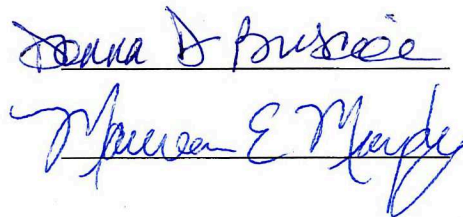 Donna D Briscoe
Maureen E Murphy